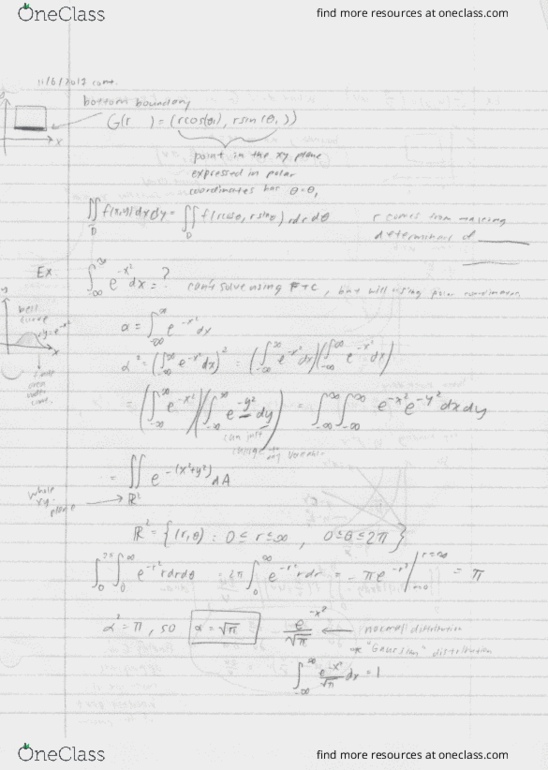 OneClass
find more resources at oneclass.com
11/6/2012 cont.
bottom boundary
G(r ) = (rcos(θ₁), rsin(θ₁))
x
point in the xy plane
expressed in polar
coordinates for θ=θ₁
∬_D f(x,y)dxdy = ∬_D f(rcosθ, rsinθ) rdrdθ
r comes from
determinant of ____
Ex
∫_{-∞}^{∞} e^{-x²} dx = ?
can't solve using FTC, but will using polar coordinates.
bell
curve
y=e^{-x²}
x
α = ∫_{-∞}^{∞} e^{-x²} dx
α² = (∫_{-∞}^{∞} e^{-x²}dx)² = (∫_{-∞}^{∞} e^{-x²}dx)(∫_{-∞}^{∞} e^{-x²}dx)
= (∫_{-∞}^{∞} e^{-x²})(∫_{-∞}^{∞} e^{-y²}dy) = ∫_{-∞}^{∞}∫_{-∞}^{∞} e^{-x²}e^{-y²}dxdy
can just
change to
any variable
= ∬_{ℝ²} e^{-(x²+y²)}dA
whole
xy-
plane
ℝ² = {(r,θ) : 0 ≤ r ≤ ∞, 0≤θ≤2π}
∫_0^{2π}∫_0^{∞} e^{-r²}rdrdθ = 2π∫_0^{∞} e^{-r²}rdr = -πe^{-r²}|_{r=0}^{r=∞} = π
α² = π, so α = √π
e^{-x²}/√π ← normal distribution
or "Gaussian" distribution
∫_{-∞}^{∞} e^{-x²}/√π dx = 1
OneClass
find more resources at oneclass.com